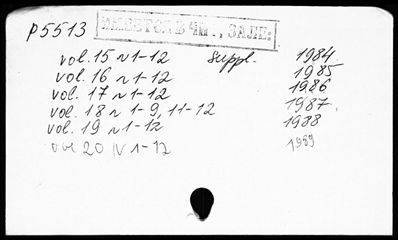 P5513 ИМЕЕТСЯ В ЧИТ. ЗАЛЕ
vol. 15 N 1-12 Suppl. 1984
vol. 16 N 1-12 1985
vol. 17 N 1-12 1986
vol. 18 N 1-9, 11-12 1987.
vol. 19 N 1-12 1988
vol 20 N 1-12 1989